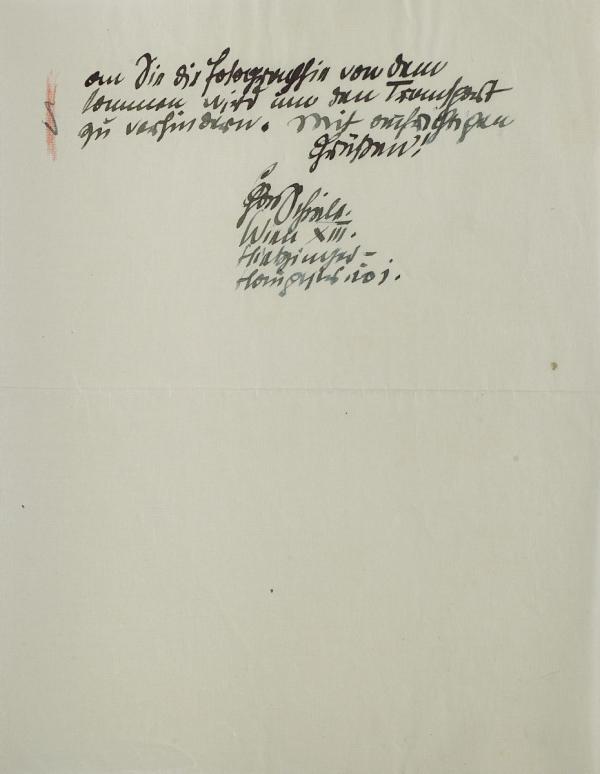 an Sie die Fotographie von dem
kommen wird um den Transport
zu verhindern. Mit aufrichtigen
Grüßen!
Egon Schiele.
Wien XIII.
Hietzinger-
Hauptstr. 101.